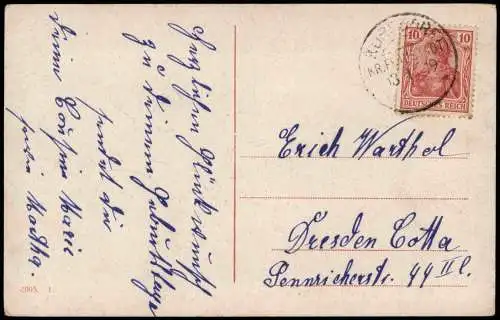 Herzlichen Glückwunsch
zu deinem Geburtstage
sendet dir
deine Cousine Marie
sowie Martha.
10 10
DEUTSCHES REICH
Erich Warthol
Dresden Cotta
Pennricherstr. 44 II l.
2005. 1.